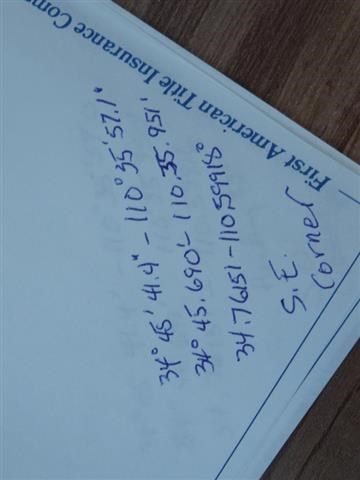 First American Title Insurance Com
S.E.
Corner
34° 45' 41.4" - 110° 35' 57.1"
34° 45.690' - 110.35.951'
34.7651 - 110.59918°